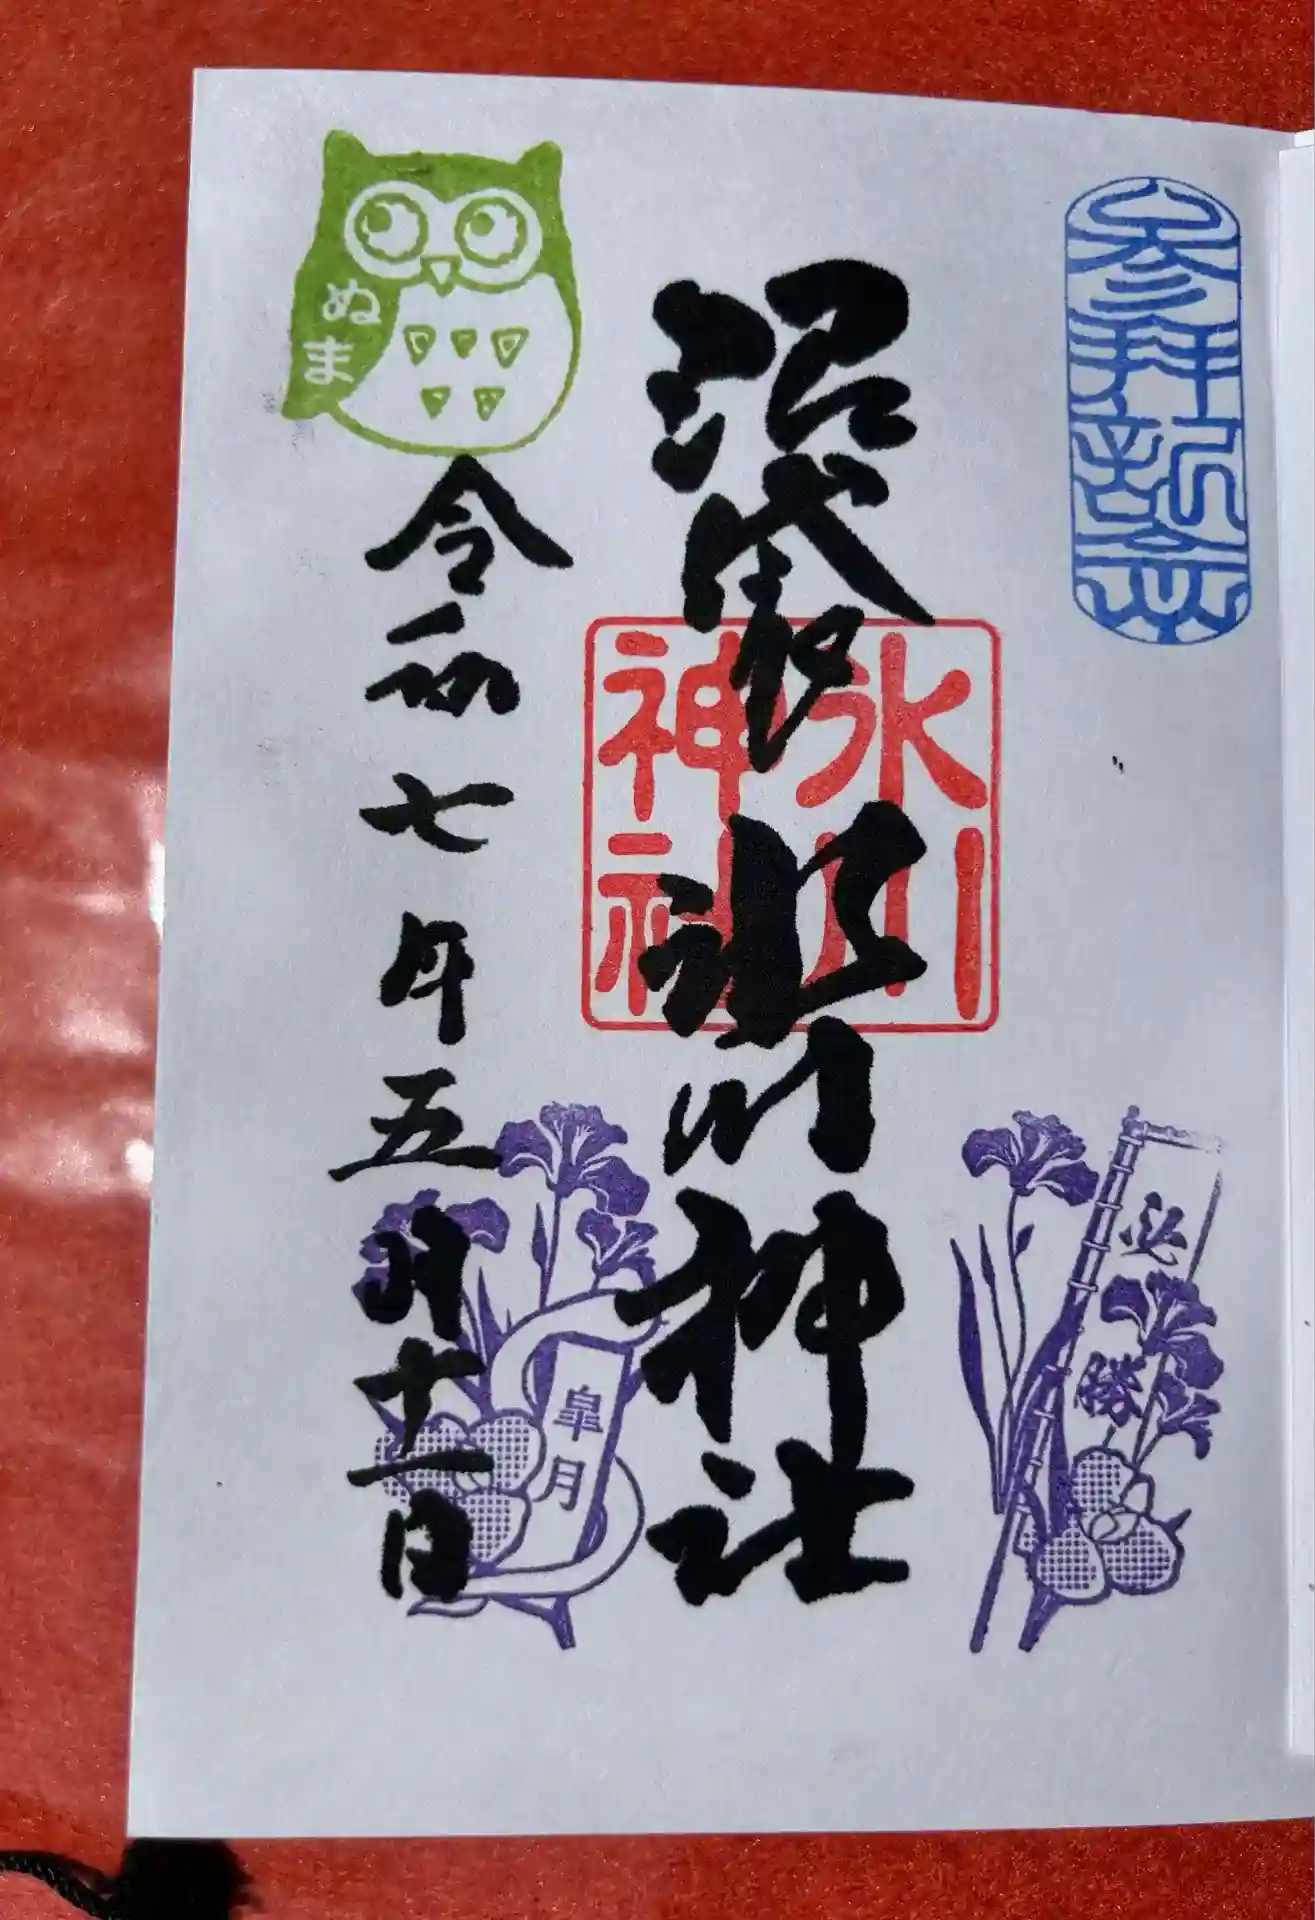 参拝祈念
必勝
沼袋氷川神社
氷川
神社
ぬま
令和七年五月十一日
皐月